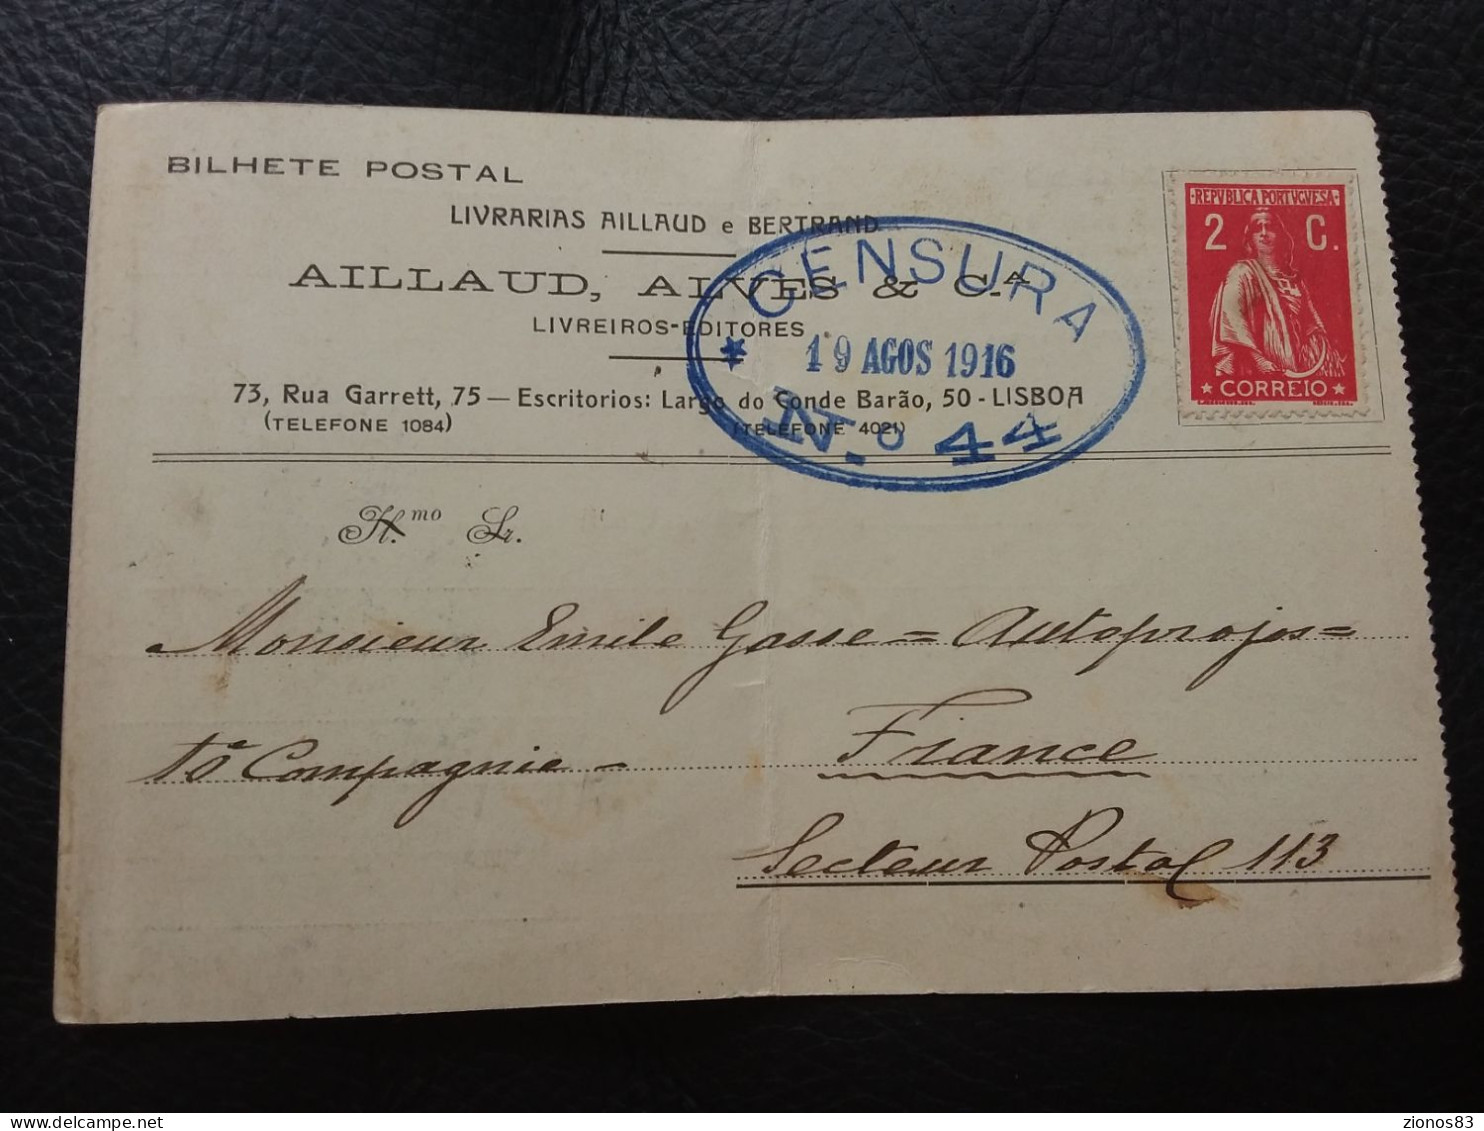 BILHETE POSTAL
LIVRARIAS AILLAUD e BERTRAND
AILLAUD, ALVES & C.A
LIVREIROS-EDITORES
73, Rua Garrett, 75 — Escritorios: Largo do Conde Barão, 50 - LISBOA
(TELEFONE 1084) (TELEFONE 4021)
CENSURA
19 AGOS 1916
N.o 44
REPVBLICA PORTVGVESA
2 C.
CORREIO
Il.mo Sr.
Monsieur Emile Gasse = Autoprojos =
Compagnie - France
Secteur Postal 113
delcampe.net
zionos83